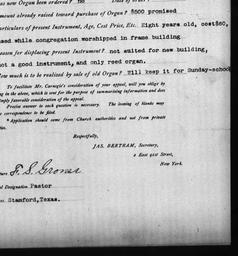 new Organ been ordered? Yes
amount already raised toward purchase of Organ? $500 promised
particulars of present Instrument, Age, Cost Price, Etc. Eight years old, cost
used while congregation worshipped in frame building
reason for displacing present Instrument? not suited for new building,
not a good instrument, and only reed organ.
How much is to be realized by sale of old Organ? Will keep it for Sunday-school
To facilitate Mr. Carnegie's consideration of your appeal, will you oblige by
in the above, which is sent for the purpose of summarizing information and does
imply favorable consideration of the appeal.
Precise answer to each question is necessary. The loaning of blanks may
correspondence to be filed.
* Application should come from Church authorities and not from private
Respectfully,
JAS. BERTRAM, Secretary,
2 East 91st Street,
New York.
F. S. Groner
Designation Pastor
Stamford, Texas.